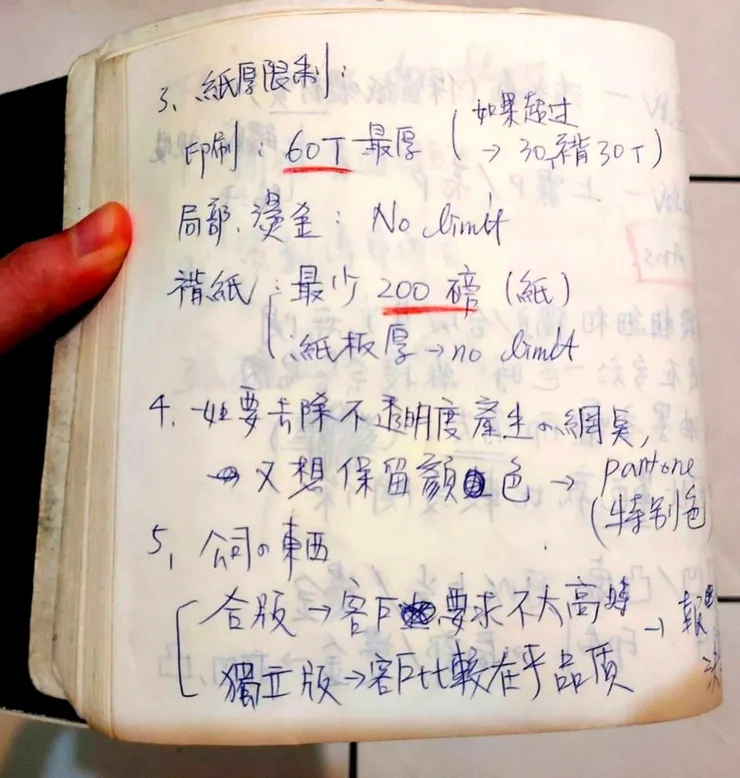 3、紙厚限制：
印刷：60T 最厚 (如果超过
→ 30,褙30T)
局部、燙金：No limit
褙紙：最少 200 磅 (紙)
：紙板厚→no limit
4、如要去除不透明度產生の網奌,
又想保留顏色 → pantone
(特别色
5、公司の東西
合版→客戶要求不太高時 → 報
獨立版→客戶比較在乎品质